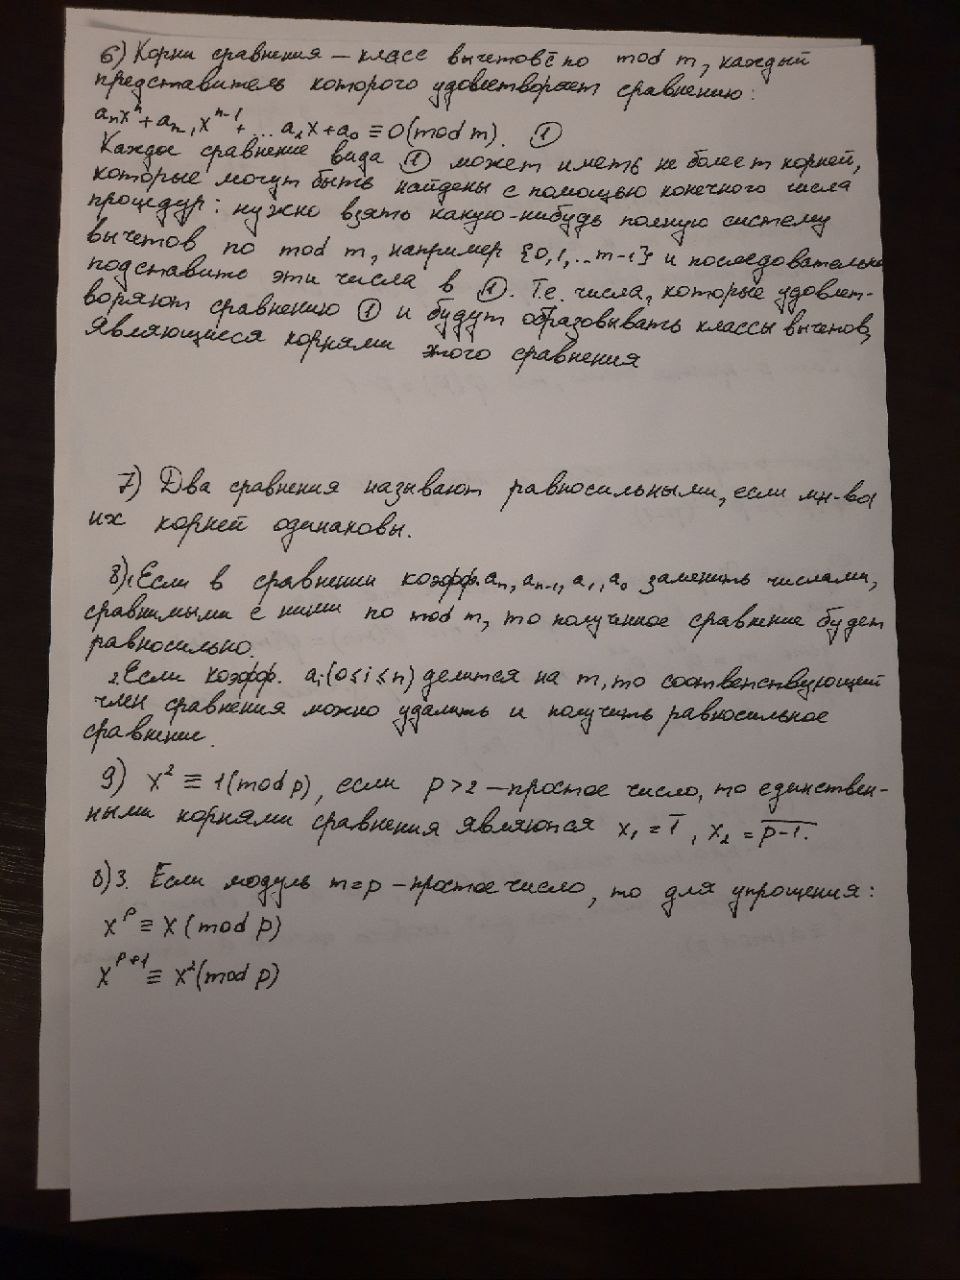 6) Корни сравнения – класс вычетов по mod m, каждый
представитель которого удовлетворяет сравнению:
aₙxⁿ + aₙ₋₁xⁿ⁻¹ + ... a₁x + a₀ ≡ 0 (mod m). ①
Каждое сравнение вида ① может иметь не более m корней,
которые могут быть найдены с помощью конечного числа
процедур: нужно взять какую-нибудь полную систему
вычетов по mod m, например {0,1,..m-1} и последовательно
подставить эти числа в ①. Т.е. числа, которые удовлет-
воряют сравнению ① и будут образовывать классы вычетов,
являющиеся корнями этого сравнения
7) Два сравнения называют равносильными, если мн-ва
их корней одинаковы.
8) 1. Если в сравнении коэфф. aₙ, aₙ₋₁, a₁, a₀ заменить числами,
сравнимыми с ними по mod m, то полученное сравнение будет
равносильно.
2. Если коэфф. aᵢ (0≤i≤n) делится на m, то соответствующий
член сравнения можно удалить и получить равносильное
сравнение.
9) x² ≡ 1 (mod p), если p>2 – простое число, то единствен-
ными корнями сравнения являются x₁ = 1̅, x₂ = p̅-̅1̅.
8) 3. Если модуль m=p – простое число, то для упрощения:
xᵖ ≡ x (mod p)
xᵖ⁺¹ ≡ x² (mod p)